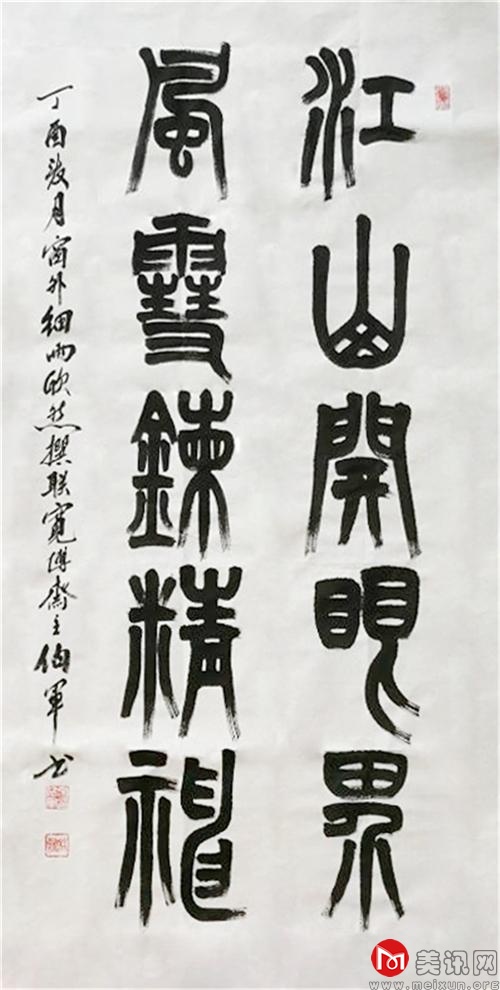 江山開眼界
風雪鍊精神
丁酉 月窗外细雨欣然撰联寬博斋主伯軍书
美讯网
www.meixun.org